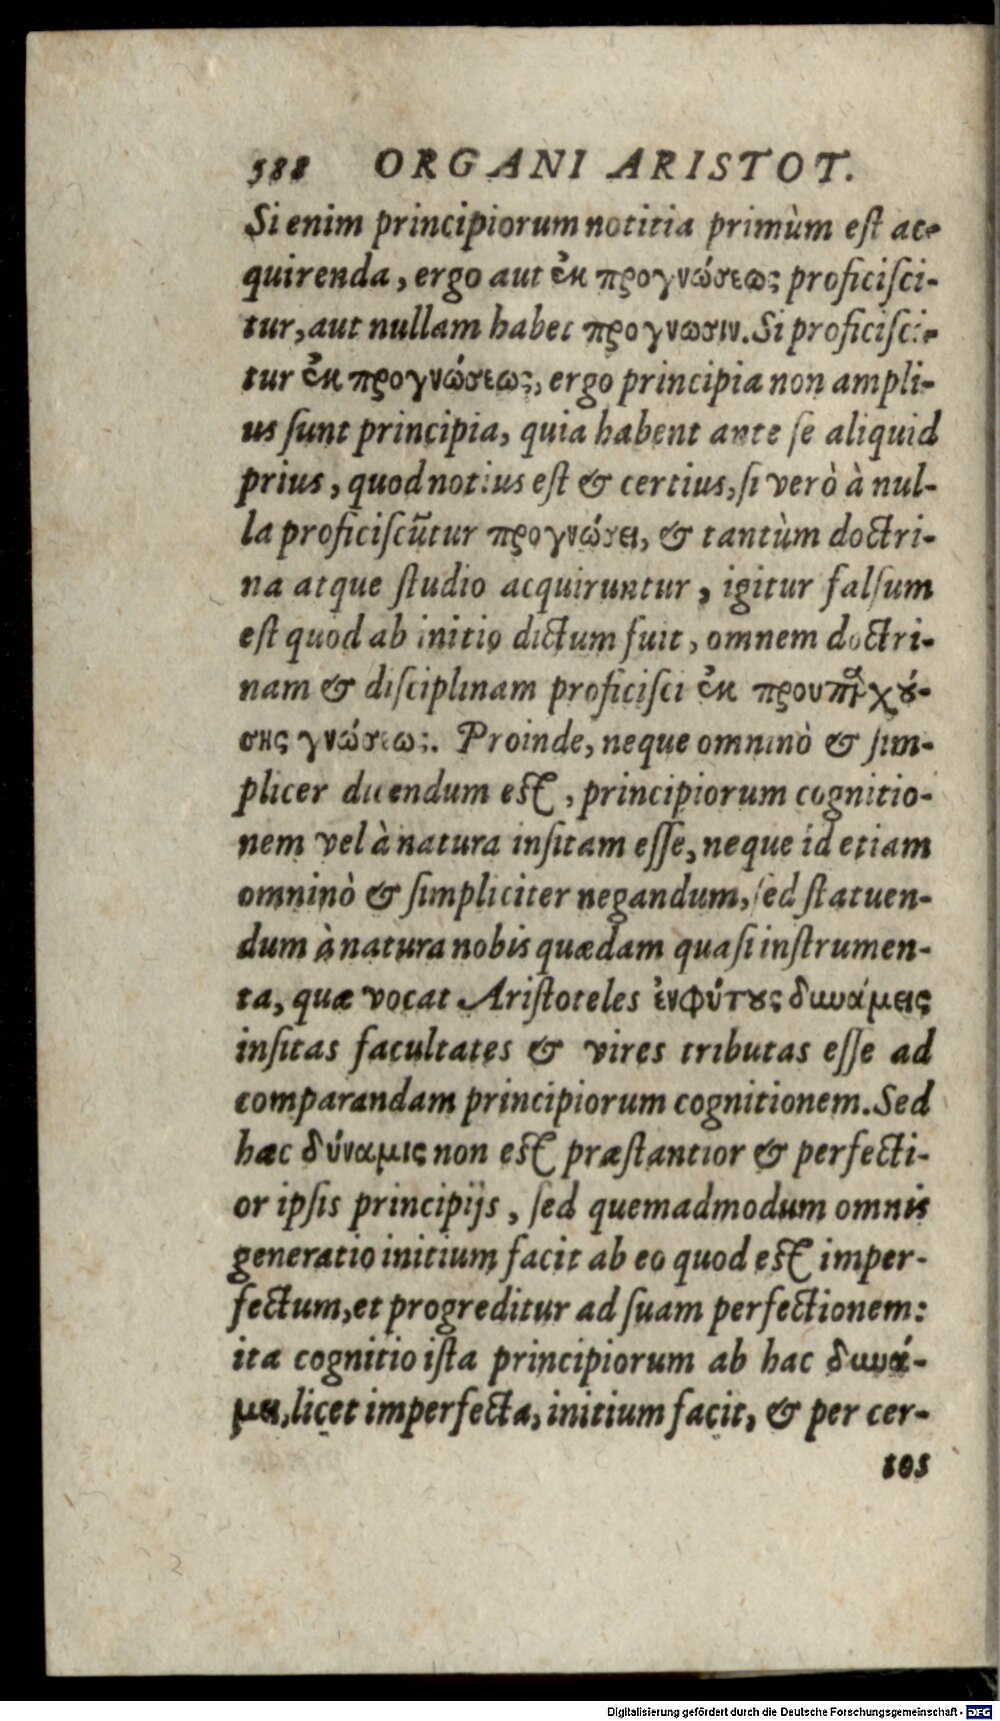 388 ORGANI ARISTOT.
Si enim principiorum notitia primùm est ac-
quirenda, ergo aut ἐκ προγνώσεως proficisci-
tur, aut nullam habet προγνωσιν. Si proficisci-
tur ἐκ προγνώσεως, ergo principia non ampli-
us sunt principia, quia habent ante se aliquid
prius, quod notius est & certius, si verò à nul-
la proficiscūtur προγνώσει, & tantùm doctri-
na atque studio acquiruntur, igitur falsum
est quod ab initio dictum fuit, omnem doctri-
nam & disciplinam proficisci ἐκ προυπαρχού-
σης γνώσεως. Proinde, neque omninò & sim-
plicer ducendum est, principiorum cognitio-
nem vel à natura insitam esse, neque id etiam
omninò & simpliciter negandum, sed statuen-
dum à natura nobis quædam quasi instrumen-
ta, quæ vocat Aristoteles ἐνφύτους δυνάμεις
insitas facultates & vires tributas esse ad
comparandam principiorum cognitionem. Sed
hæc δύναμις non est præstantior & perfecti-
or ipsis principijs, sed quemadmodum omnis
generatio initium facit ab eo quod est imper-
fectum, et progreditur ad suam perfectionem:
ita cognitio ista principiorum ab hac δυνά-
μει, licet imperfecta, initium facit, & per cer-
tos
Digitalisierung gefördert durch die Deutsche Forschungsgemeinschaft - DFG